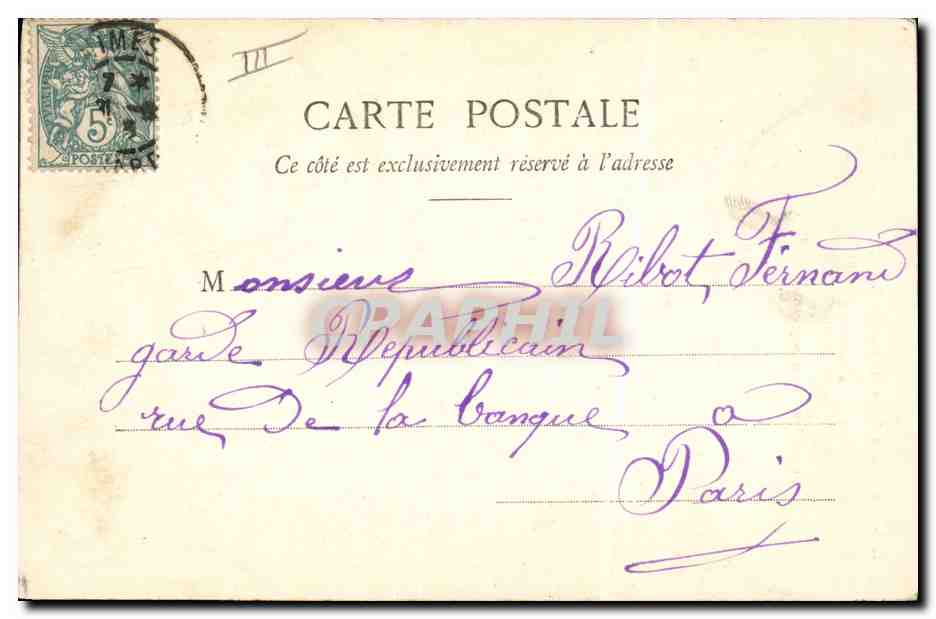 IMES
7
5c
POSTES
III
CARTE POSTALE
Ce côté est exclusivement réservé à l'adresse
Monsieur Ribot, Fernand
CPARPHIL
garde Republicain
rue De la banque a
Paris